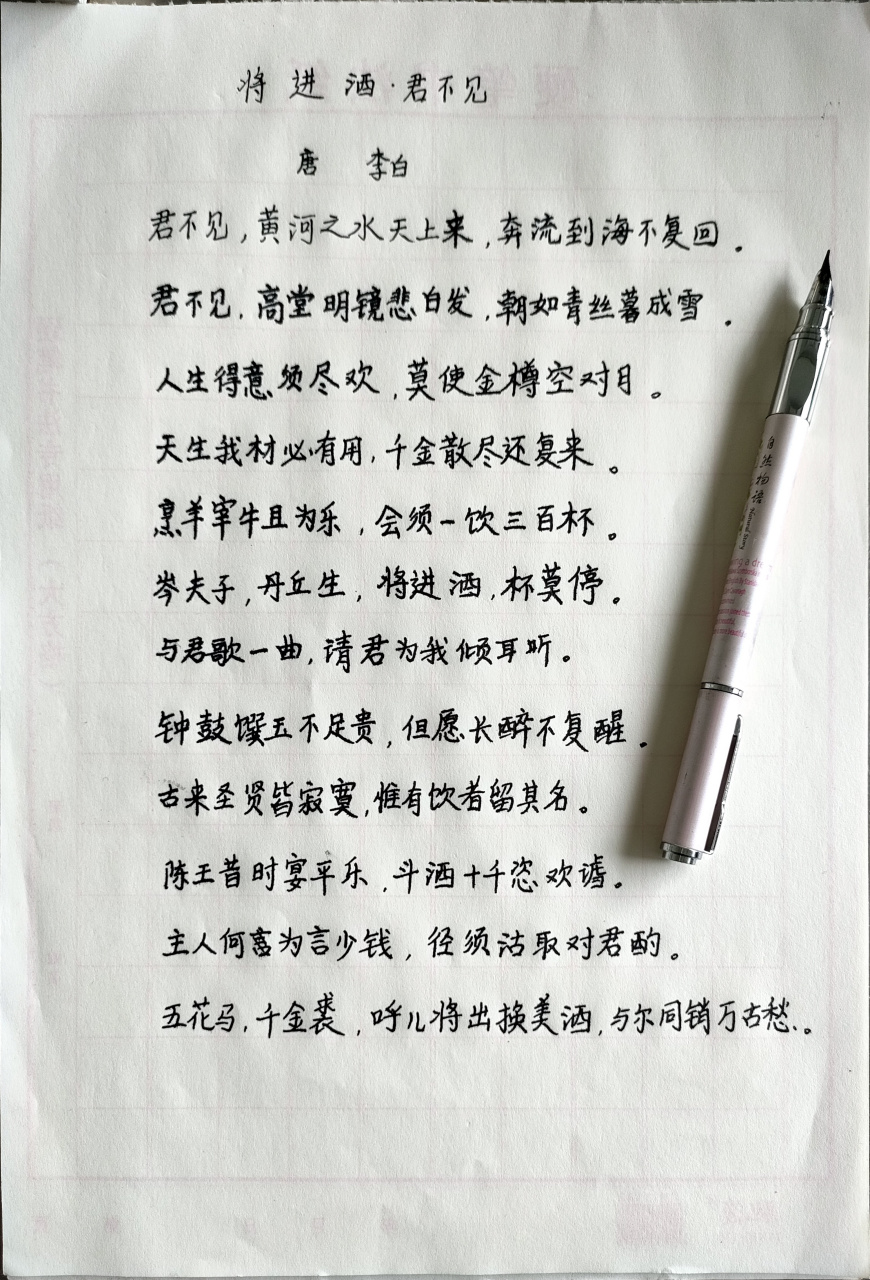 将进酒·君不见
唐 李白
君不见,黄河之水天上来,奔流到海不复回。
君不见,高堂明镜悲白发,朝如青丝暮成雪。
人生得意须尽欢,莫使金樽空对月。
天生我材必有用,千金散尽还复来。
烹羊宰牛且为乐,会须一饮三百杯。
岑夫子,丹丘生,将进酒,杯莫停。
与君歌一曲,请君为我倾耳听。
钟鼓馔玉不足贵,但愿长醉不复醒。
古来圣贤皆寂寞,惟有饮者留其名。
陈王昔时宴平乐,斗酒十千恣欢谑。
主人何为言少钱,径须沽取对君酌。
五花马,千金裘,呼儿将出换美酒,与尔同销万古愁。
自然物语
Natural Story